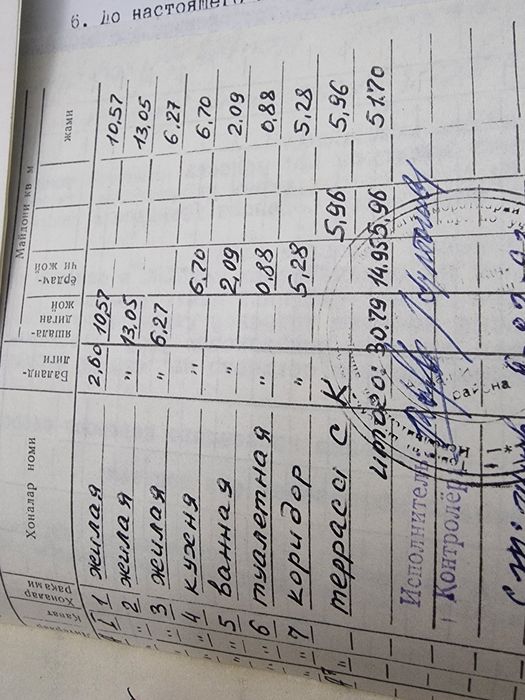 6. До настоящег
Қават
Хоналар рақами
Хоналар номи
Баланд-лиги
Майдони кв м
яшала-диган жой
ёрдам-чи жой
жами
1 1 жилая 2,60 10,57 10,57
" 2 жилая " 13,05 13,05
" 3 жилая " 6,27 6,27
" 4 кухня " 6,70 6,70
" 5 ванная " 2,09 2,09
" 6 туалетная " 0,88 0,88
" 7 коридор " 5,28 5,28
" террассы с К 5,96 5,96
итого: 30.79 14,95 5,96 51.70
Исполнитель:
Контролёр
района